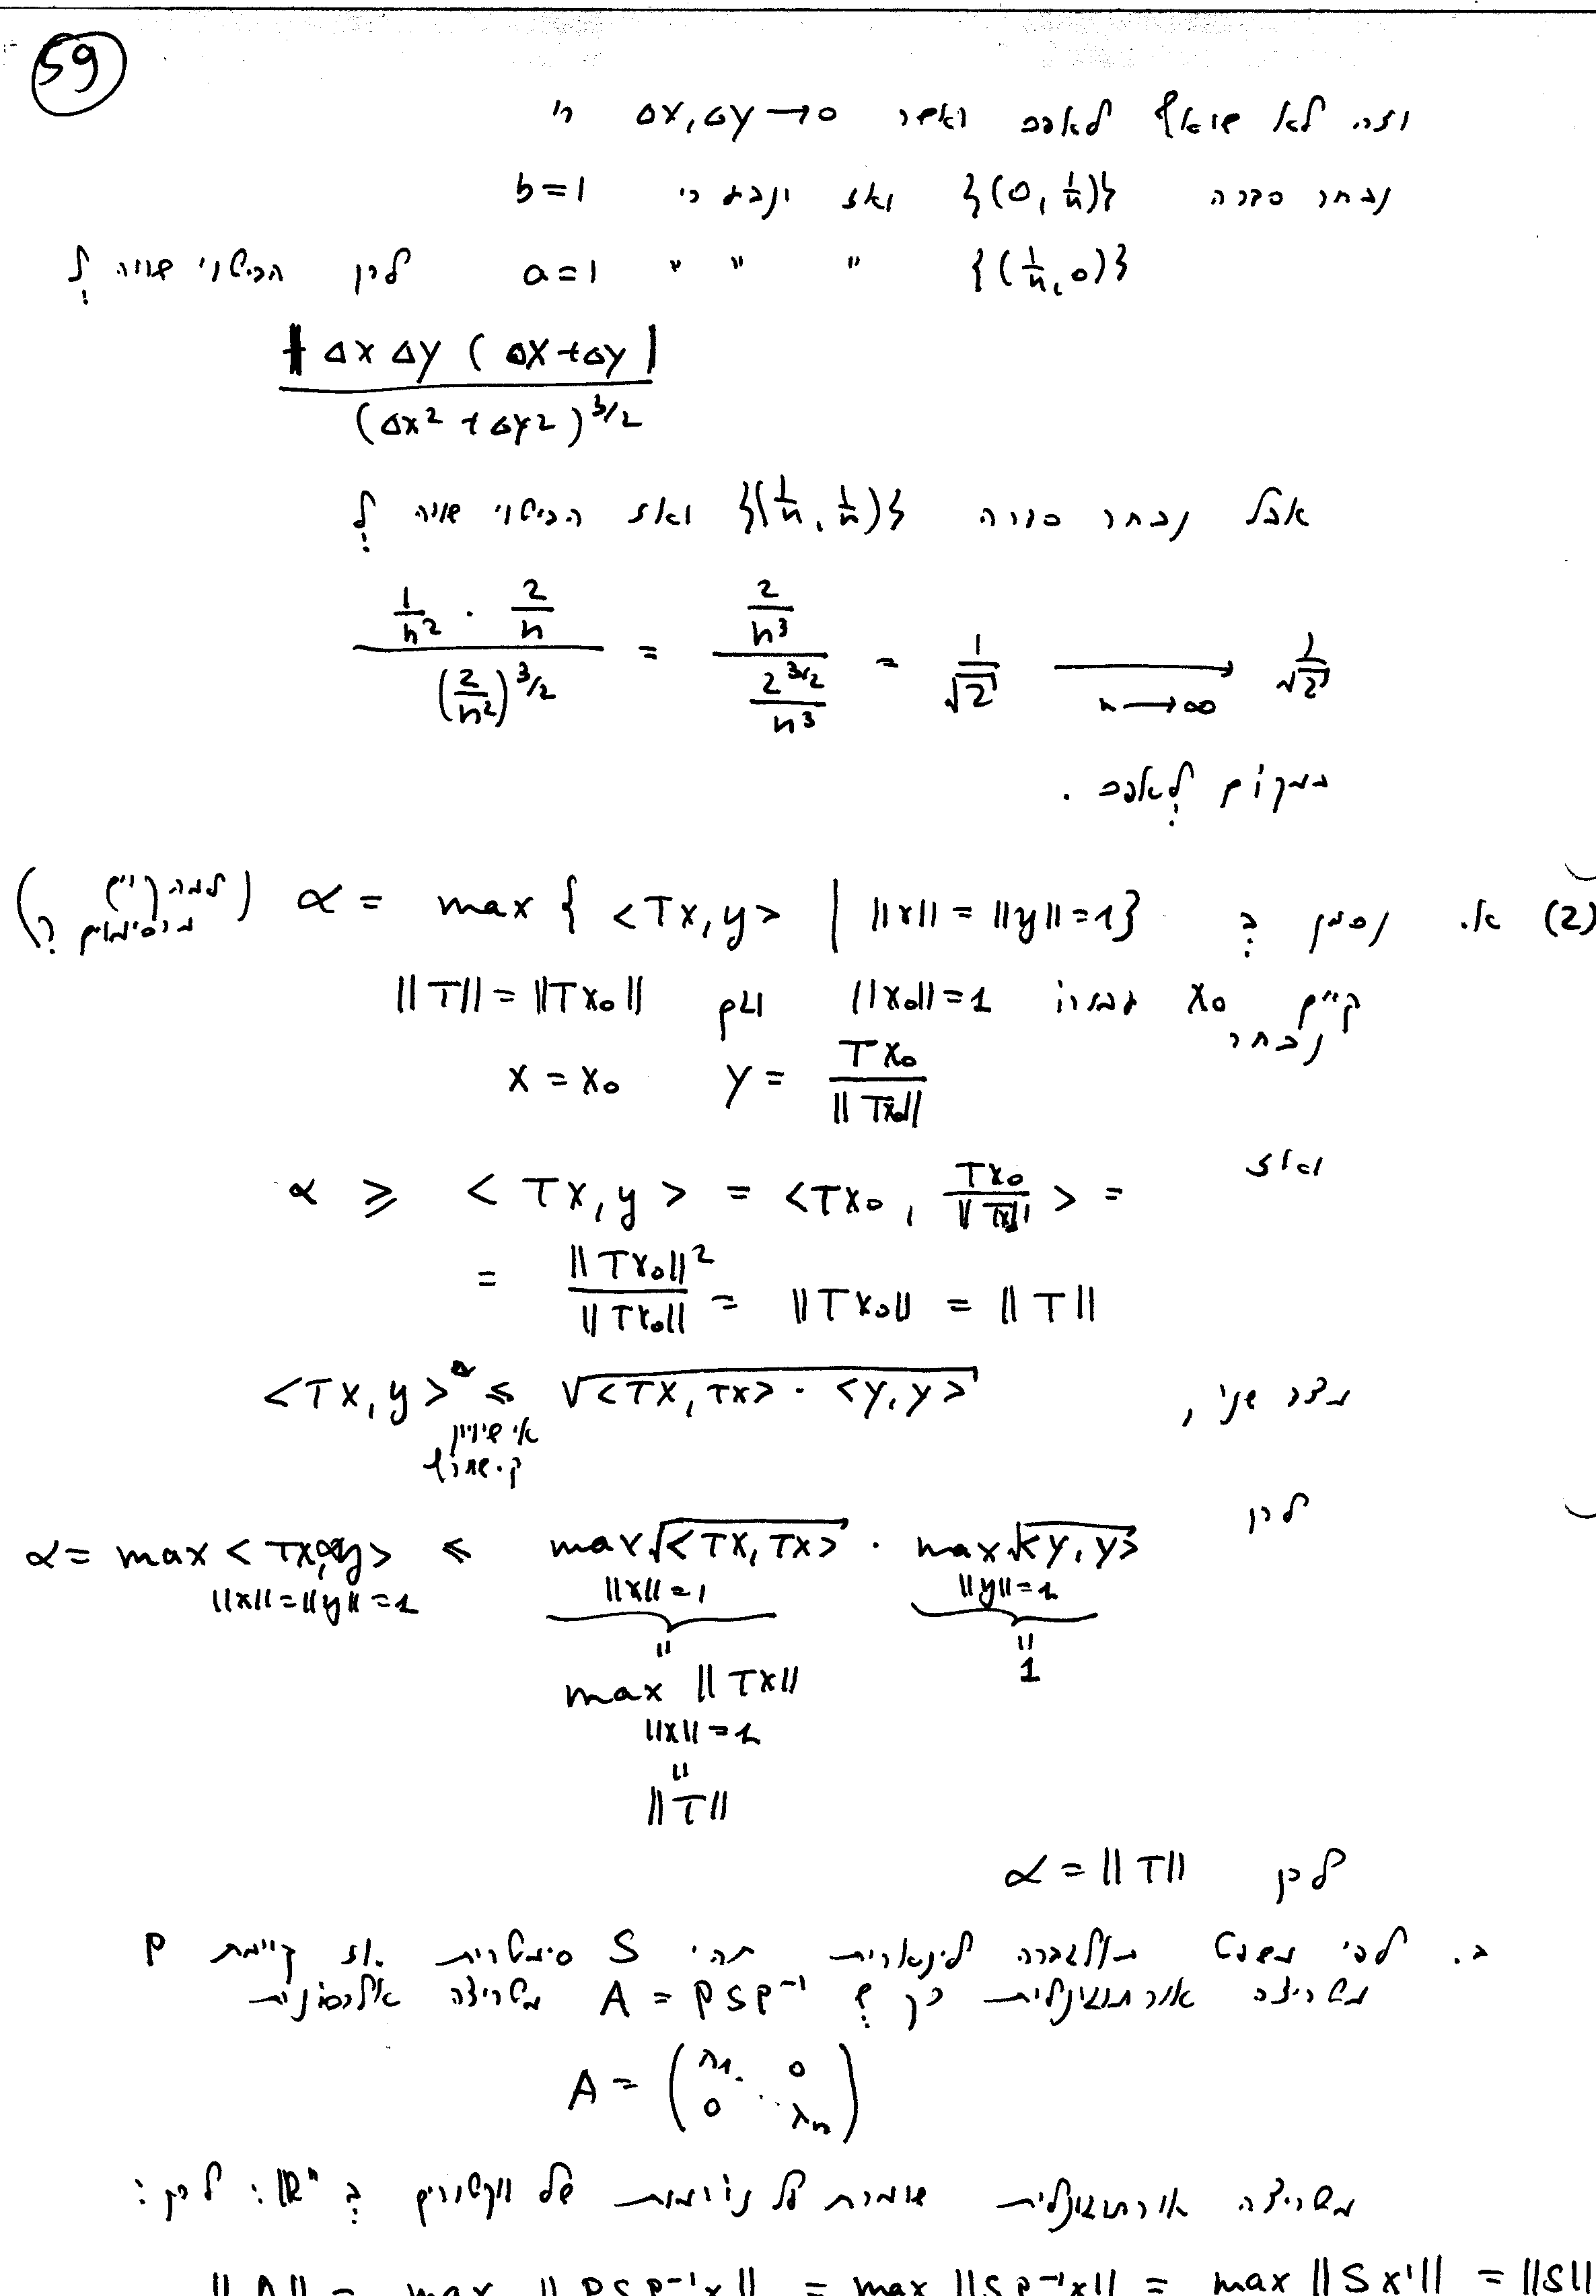 59
וזה לא שואף לאפס כאשר Δx, Δy → 0 כי
נבחר סדרה {(0, 1/n)} ואז ינבע כי b = 1
{(1/n, 0)} " " " a = 1 לכן הביטוי שווה ל
|Δx Δy (Δx + Δy| / (Δx² + Δy²)^{3/2}
אבל נבחר סדרה {(1/n, 1/n)} ואז הביטוי שווה ל
(1/n² · 2/n) / (2/n²)^{3/2} = (2/n³) / (2^{3/2}/n³) = 1/√2 →_{n→∞} 1/√2
במקום לאפס.
(2) א. נסמן ב α = max { <Tx, y> | ||x|| = ||y|| = 1 } (למה קיים מכסימום ?)
קיים x₀ עבורו ||x₀|| = 1 וגם ||T|| = ||Tx₀||
נבחר x = x₀ y = Tx₀ / ||Tx₀||
ואז α ≥ <Tx, y> = <Tx₀, Tx₀/||Tx₀||> =
= ||Tx₀||² / ||Tx₀|| = ||Tx₀|| = ||T||
מצד שני, <Tx, y> ≤ √(<Tx, Tx> · <y, y>)
אי שיויון
ק. שוורץ
לכן
α = max <Tx, y> ≤ max √<Tx, Tx> · max √<y, y>
||x|| = ||y|| = 1 ||x|| = 1 ||y|| = 1
" "
max ||Tx|| 1
||x|| = 1
"
||T||
לכן α = ||T||
ב. לפי משפט מאלגברה לינארית תהי S סימטרית. אז קיימת P
מטריצה אורתוגונלית כך ש A = PSP⁻¹ מטריצה אלכסונית
A = (λ₁ 0
0 λₙ)
מטריצה אורתוגונלית שומרת על נורמות של וקטורים ב ℝⁿ. לכן:
||A|| = max ||PSP⁻¹x|| = max ||SP⁻¹x|| = max ||Sx'|| = ||S||